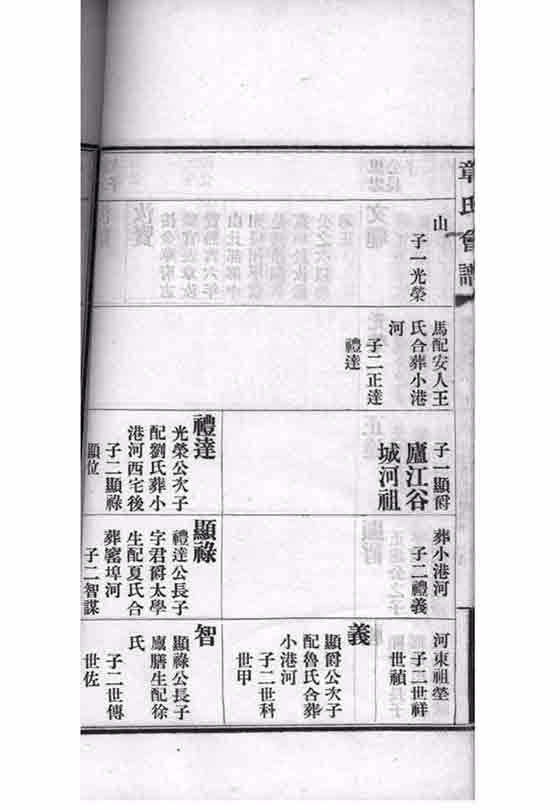 章氏會譜
山
子一光榮
馬配安人王
氏合葬小港
河
子二正達
禮達
子一顯爵
廬江谷
城河祖
禮達
光榮公次子
配劉氏葬小
港河西宅後
子二顯祿
顯位
葬小港河
子二禮義
顯祿
禮達公長子
字君爵太學
生配夏氏合
葬窰埠河
子二智謀
河東祖塋
子二世祥
世禎
義
顯爵公次子
配魯氏合葬
小港河
子二世科
世甲
智
顯祿公長子
廩膳生配徐
氏
子二世傳
世佐